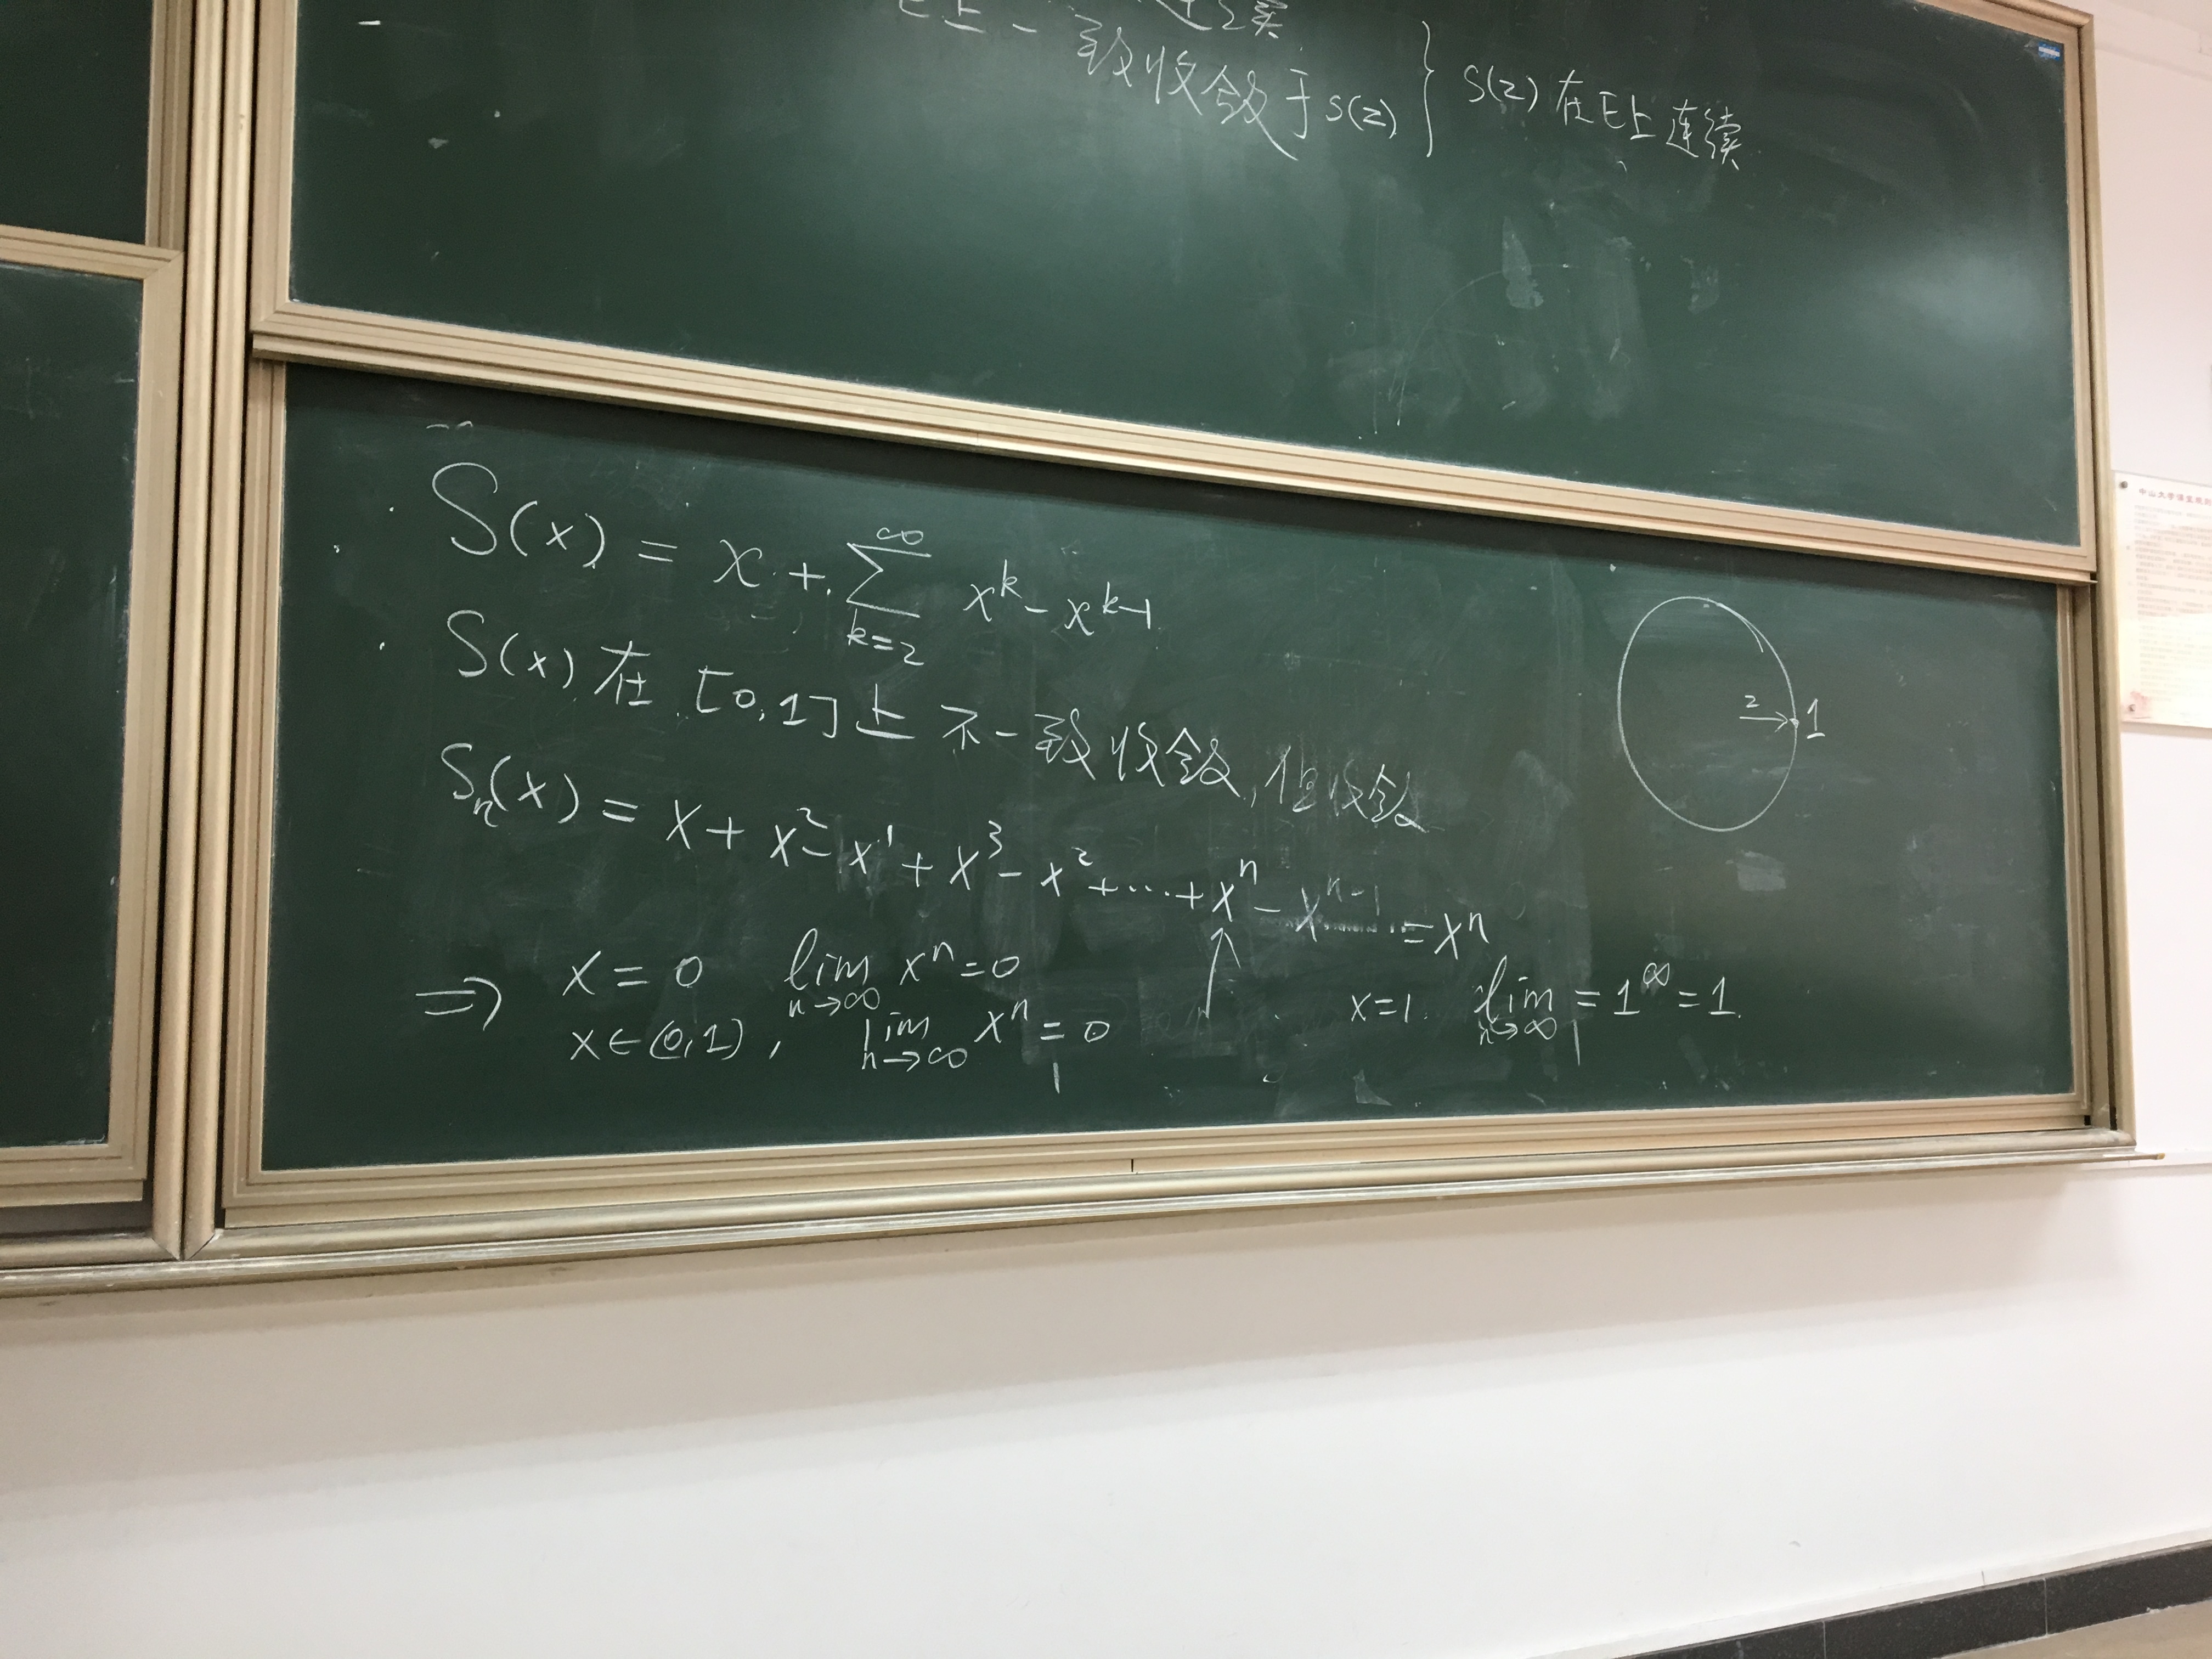 E上一致收敛于S(z) } S(z)在E上连续
S(x) = x + ∑_{k=2}^{∞} x^k - x^{k-1}
S(x)在[0,1]上不一致收敛,但收敛
S_n(x) = x + x^2 - x^1 + x^3 - x^2 + ⋯ + x^n - x^{n-1} = x^n
⇒ x = 0 lim_{n→∞} x^n = 0
x∈(0,1), lim_{n→∞} x^n = 0
x=1. lim_{n→∞} = 1^∞ = 1.
z → 1
中山大学课室规则